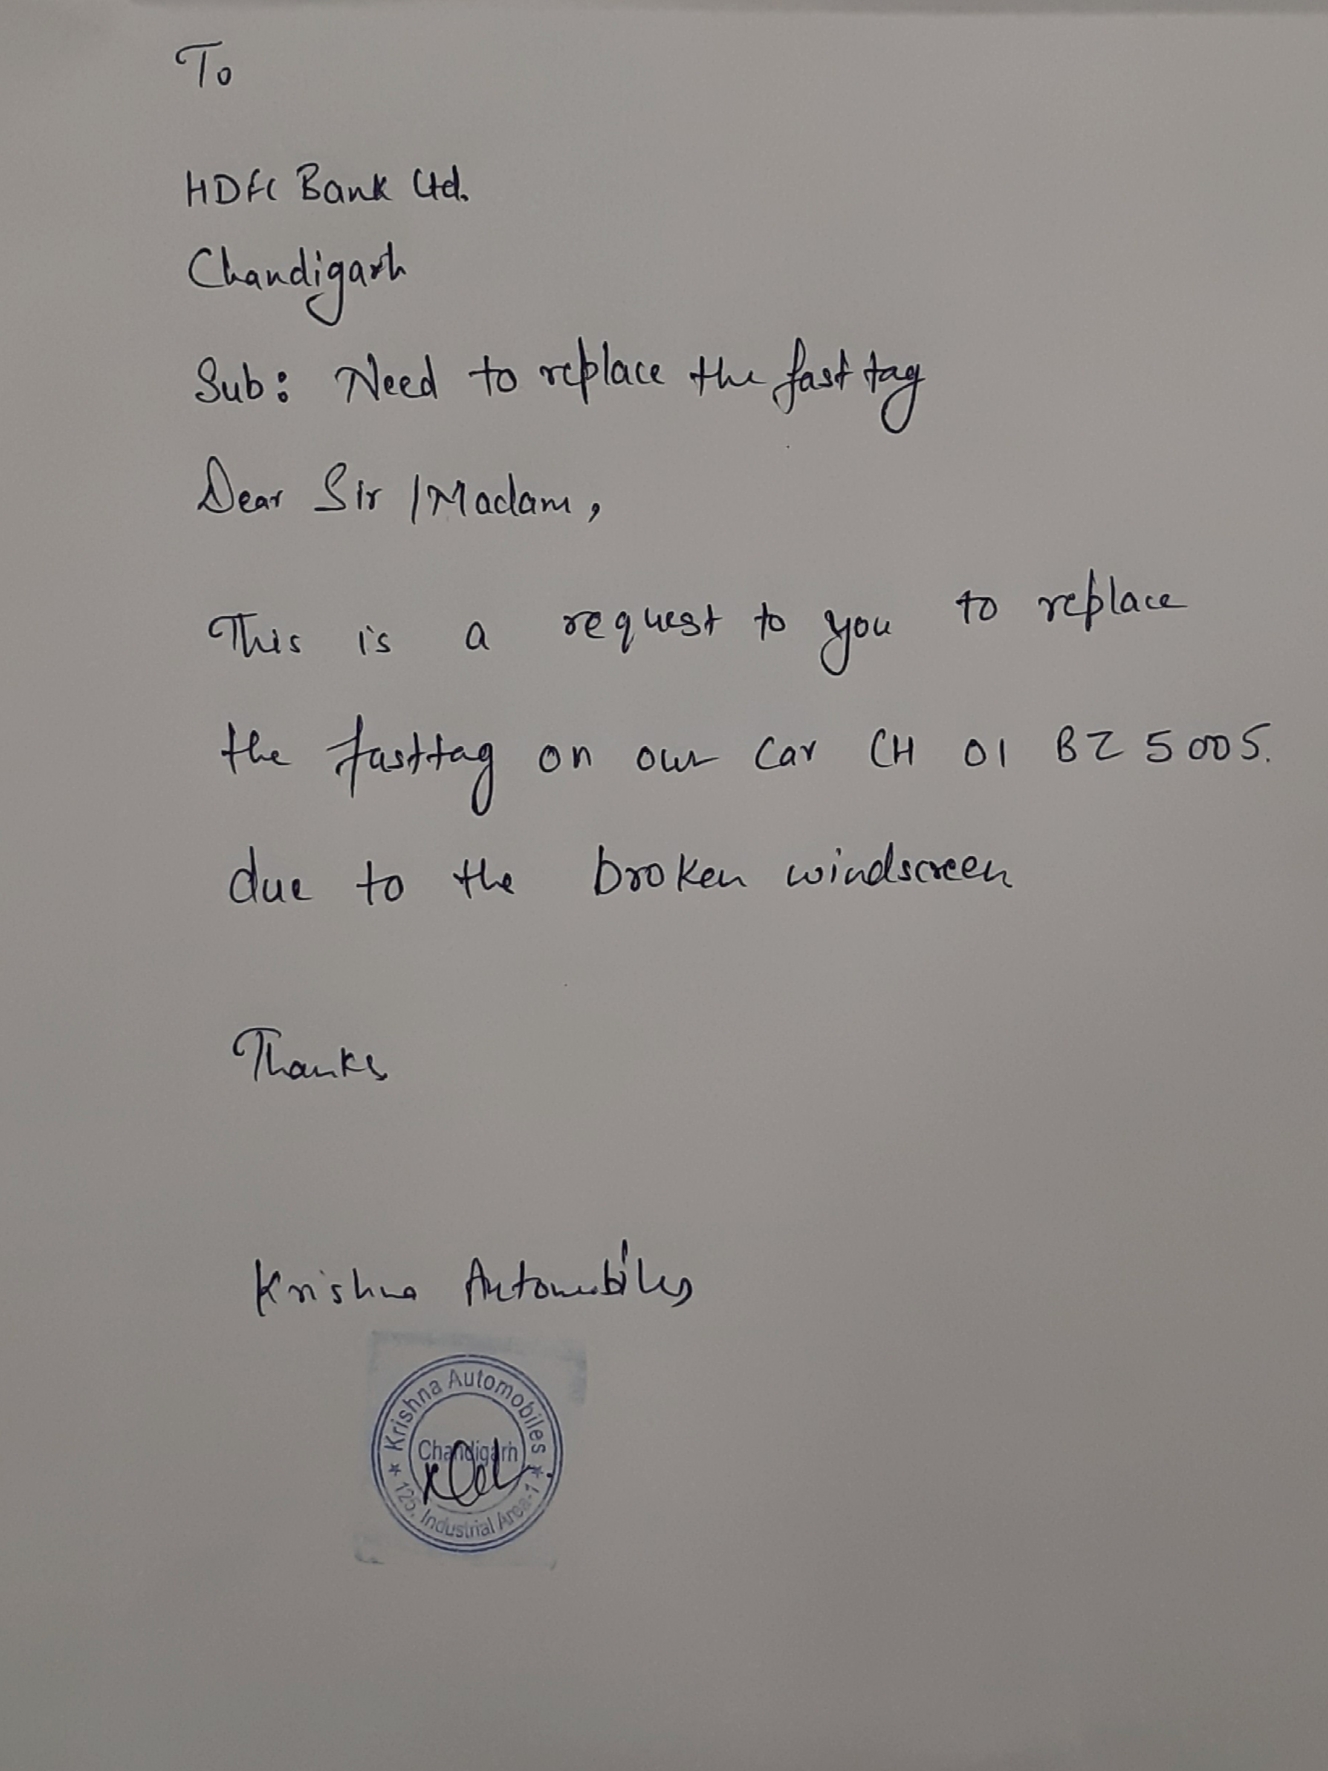 To
HDFC Bank Ltd.
Chandigarh
Sub: Need to replace the fast tag
Dear Sir /Madam,
This is a request to you to replace
the fasttag on our car CH 01 BZ 5005.
due to the broken windscreen
Thanks
Krishna Automobiles
Krishna Automobiles
Chandigarh
★ 125, Industrial Area-1 ★